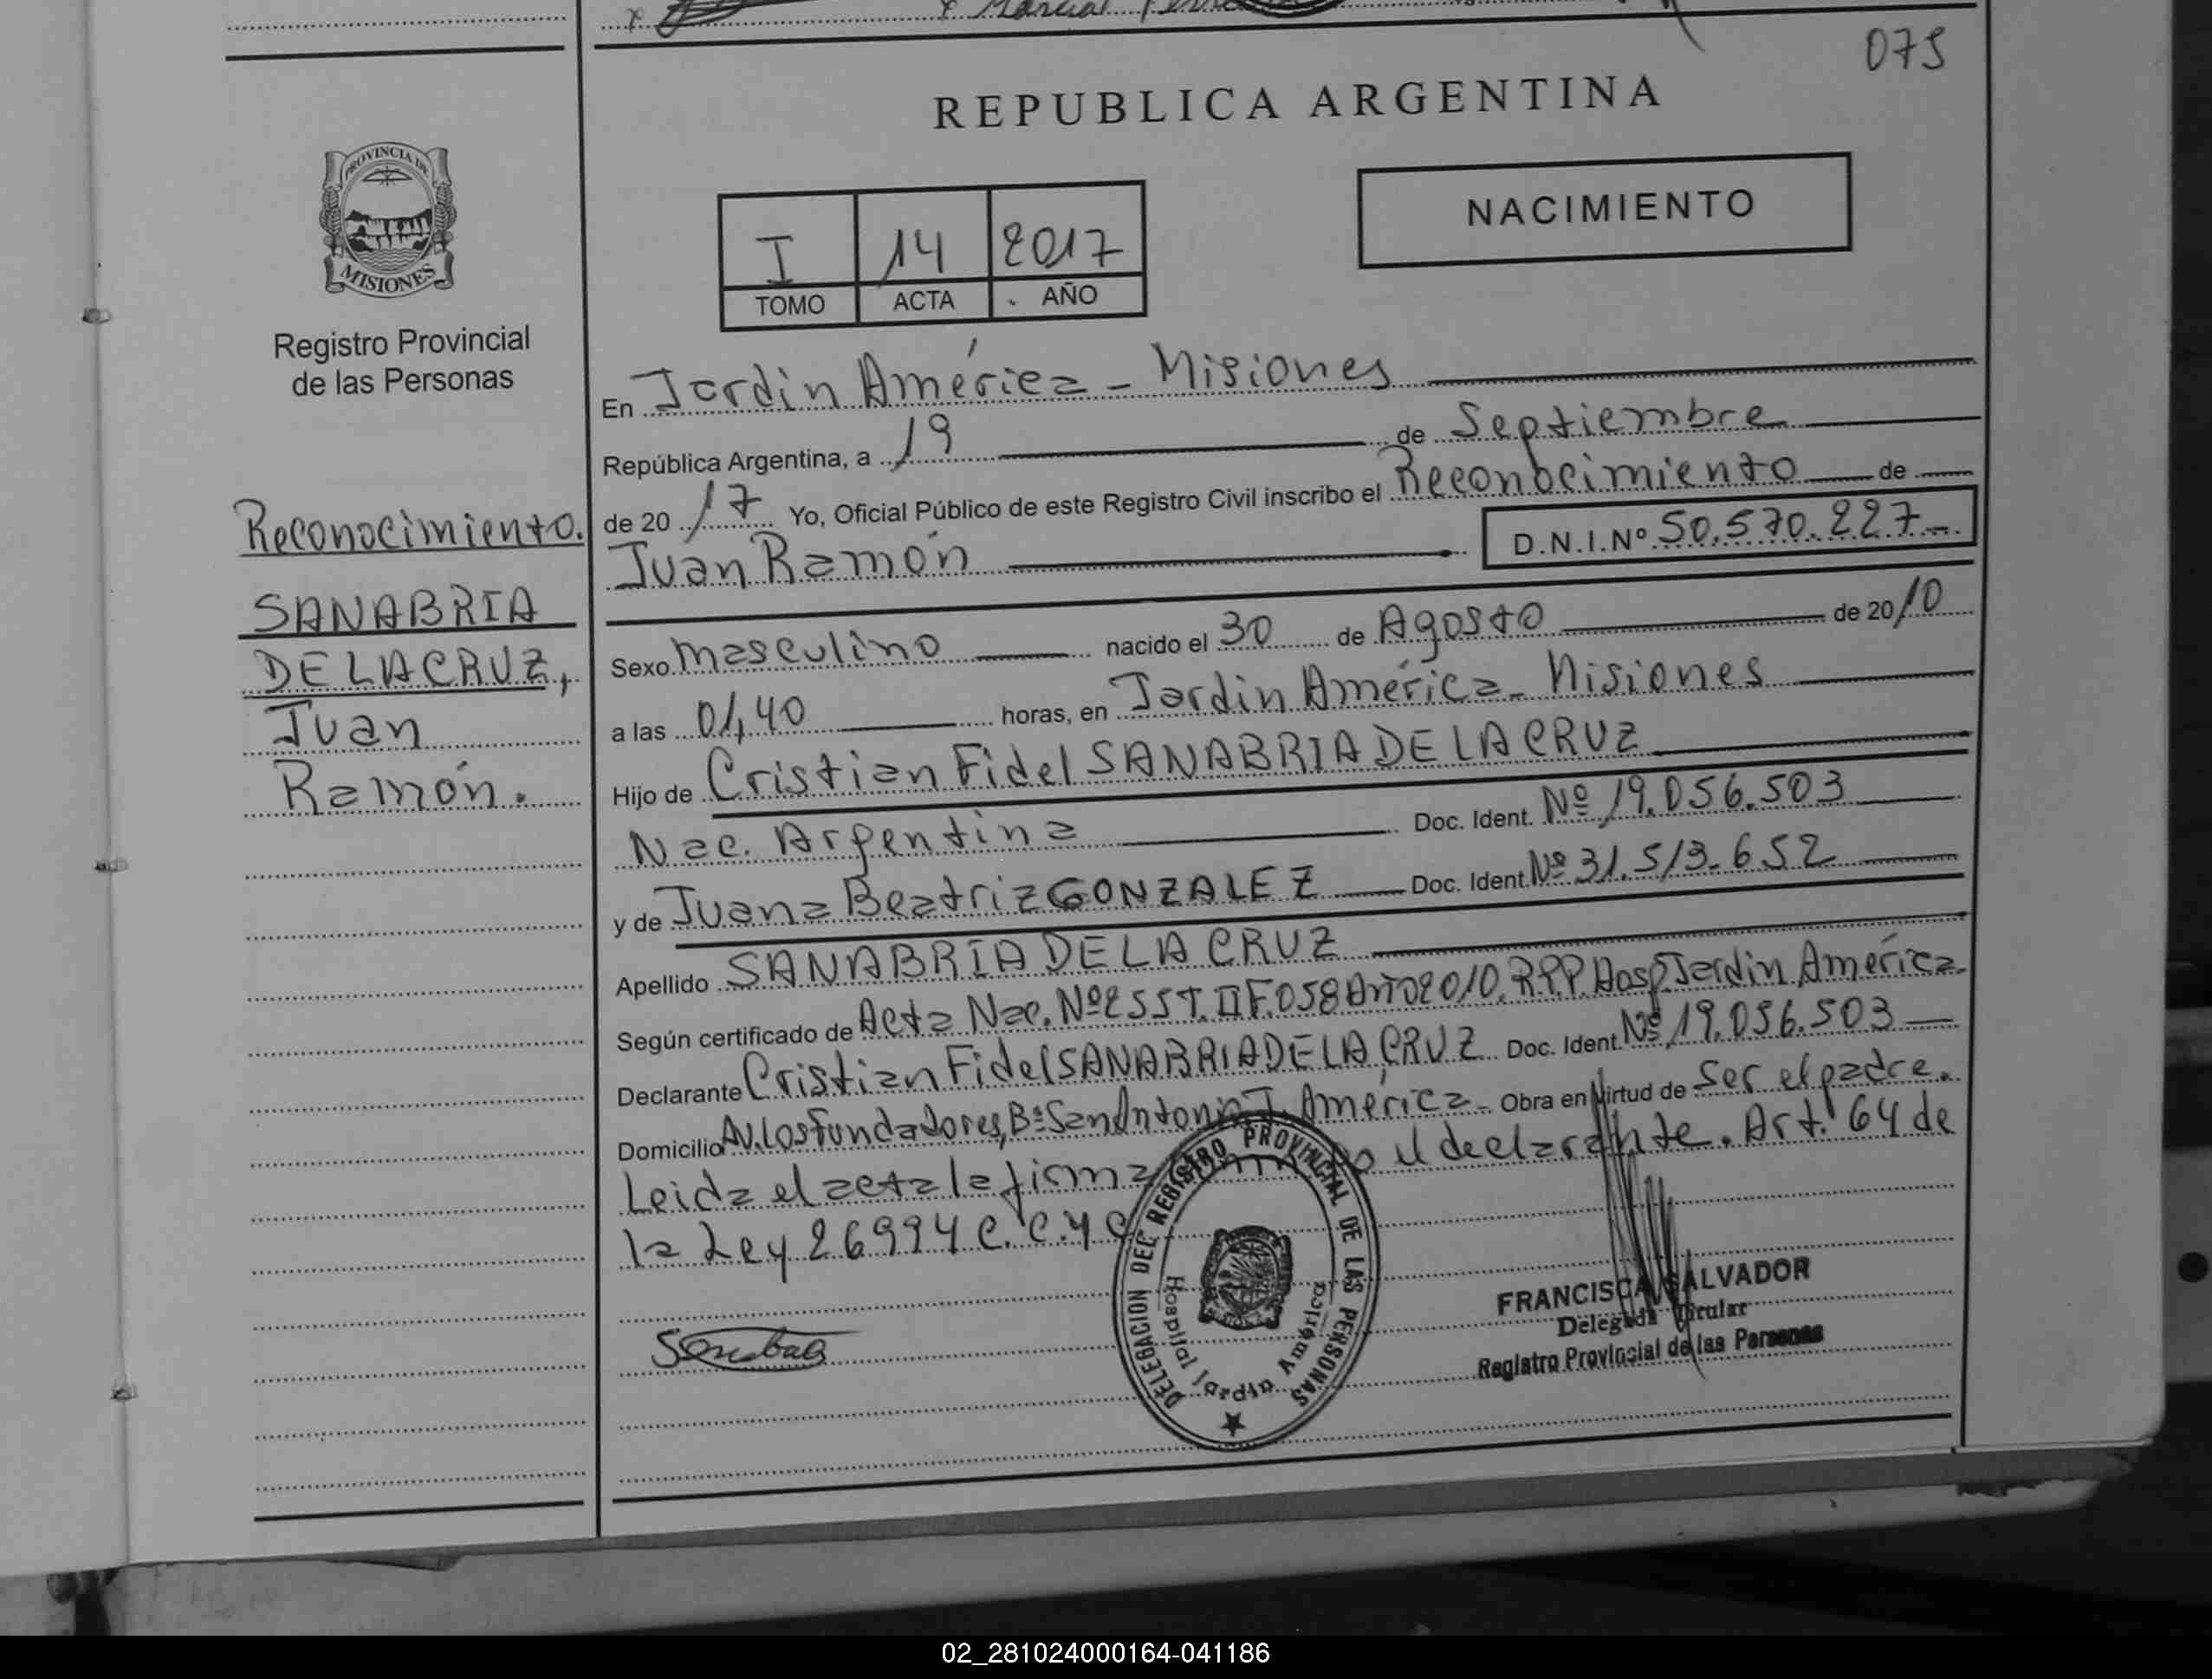 Marcial
075
REPUBLICA ARGENTINA
PROVINCIA DE
MISIONES
Registro Provincial
de las Personas
NACIMIENTO
I 14 2017
TOMO ACTA AÑO
En Jardín América - Misiones
República Argentina, a 19 de Septiembre
de 20 17 Yo, Oficial Público de este Registro Civil inscribo el Reconocimiento de
Juan Ramón D.N.I.Nº 50.570.227
Reconocimiento.
SANABRIA
DE LA CRUZ,
Juan
Ramón.
Sexo masculino nacido el 30 de Agosto de 20 10
a las 01,40 horas, en Jardín América - Misiones
Hijo de Cristian Fidel SANABRIA DE LA CRUZ
Nac. Argentina Doc. Ident. Nº 19.056.503
y de Juana Beatriz GONZALEZ Doc. Ident. Nº 31.513.652
Apellido SANABRIA DE LA CRUZ
Según certificado de Acta Nac. Nº255 T. II F. 058 Año 2010. R.P.P. Hosp. Jardín América.
Declarante Cristian Fidel SANABRIA DE LA CRUZ Doc. Ident. Nº 19.056.503
Domicilio Av. Los Fundadores, Bº San Antonio J. América - Obra en Virtud de Ser el padre.
Leida el acta la firma el declarante. Art. 64 de
la Ley 26994 C. C. y C
DELEGACION DEL REGISTRO PROVINCIAL DE LAS PERSONAS
Hospital Jardín América
FRANCISCA SALVADOR
Delegada Titular
Registro Provincial de las Personas
02_281024000164-041186